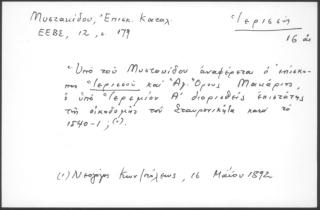 Μυστακίδου, Ἐπισκ. Καταλ.
Ἱερισσὴ
ΕΕΒΣ, 12, σ. 179
16 αἰ
Ὑπὸ τοῦ Μυστακίδου ἀναφέρεται ὁ ἐπίσκο-
πος Ἱερισσοῦ καὶ Ἁγ. Ὄρους Μακάριος,
ὁ ὑπὸ Ἱερεμίου Α' διορισθεὶς ἐπιστάτης
τῆς οἰκοδομῆς τοῦ Σταυρονικήτα κατὰ τὸ
1540-1; (1).
(1) Νεολόγος Κων/πόλεως, 16 Μαΐου 1892